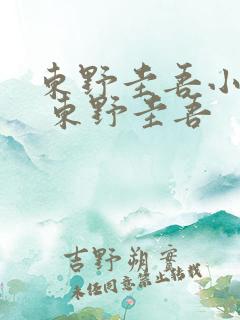 東野圭吾小
東野圭吾
吉野朔實
未经同意禁止转载